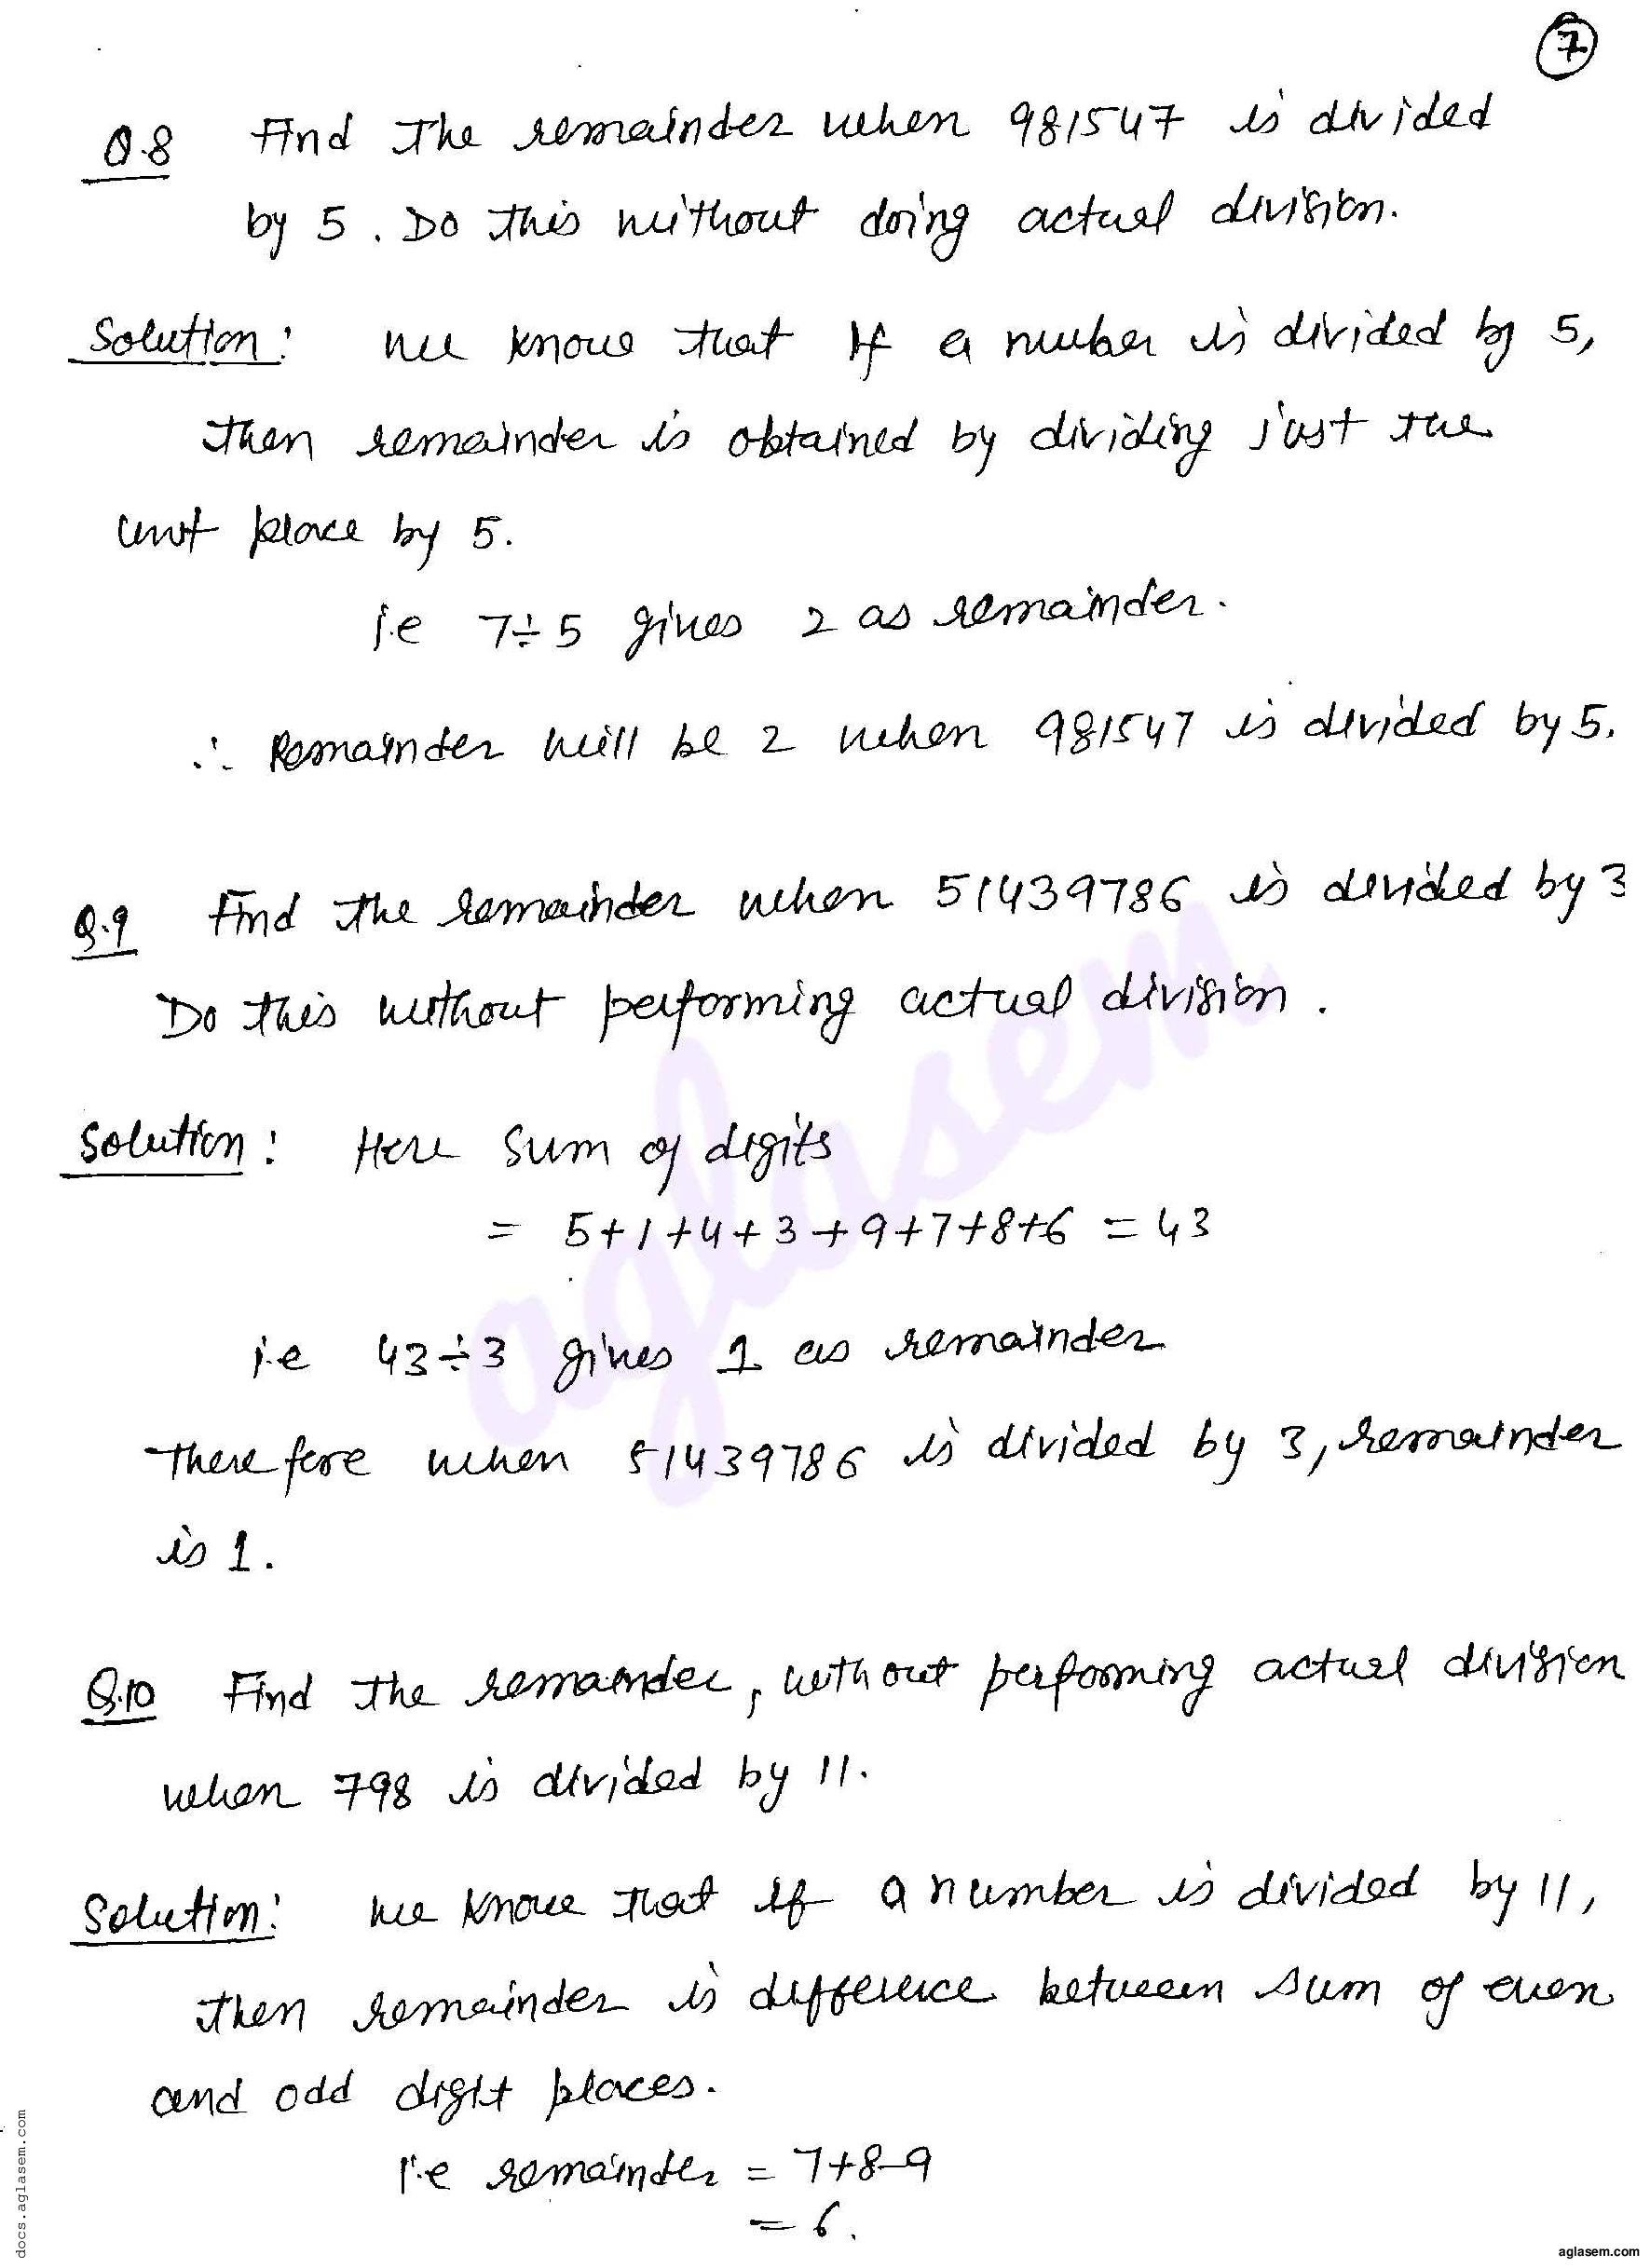 7
Q.8 Find the remainder when 981547 is divided
by 5. Do this without doing actual division.
Solution: We know that if a number is divided by 5,
then remainder is obtained by dividing just the
unit place by 5.
i.e 7÷5 gives 2 as remainder.
∴ Remainder will be 2 when 981547 is divided by 5.
Q.9 Find the remainder when 51439786 is divided by 3
Do this without performing actual division.
Solution: Here sum of digits
= 5+1+4+3+9+7+8+6 = 43
i.e 43÷3 gives 1 as remainder
Therefore when 51439786 is divided by 3, remainder
is 1.
Q.10 Find the remainder, without performing actual division
when 798 is divided by 11.
Solution: We know that if a number is divided by 11,
then remainder is difference between sum of even
and odd digit places.
i.e remainder = 7+8-9
= 6.
aglasem
docs.aglasem.com
aglasem.com